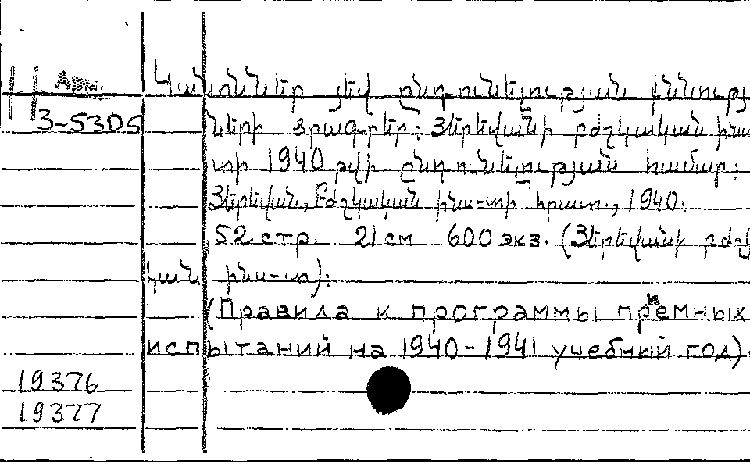 Арм.
Կանոններ յեվ ընդունելության քննությ
3-5305
ների ծրագրեր: Յերեվանի բժշկական ինս
տի 1940 թվի ընդունելության համար:
Յերեվան, Բժշկական ինս-տի հրատ., 1940.
52 стр. 21 см 600 экз. (Յերեվանի բժշկ
կան ինս-տ):
(Правила и программы приемных
испытаний на 1940-1941 учебный год)
19376
19377